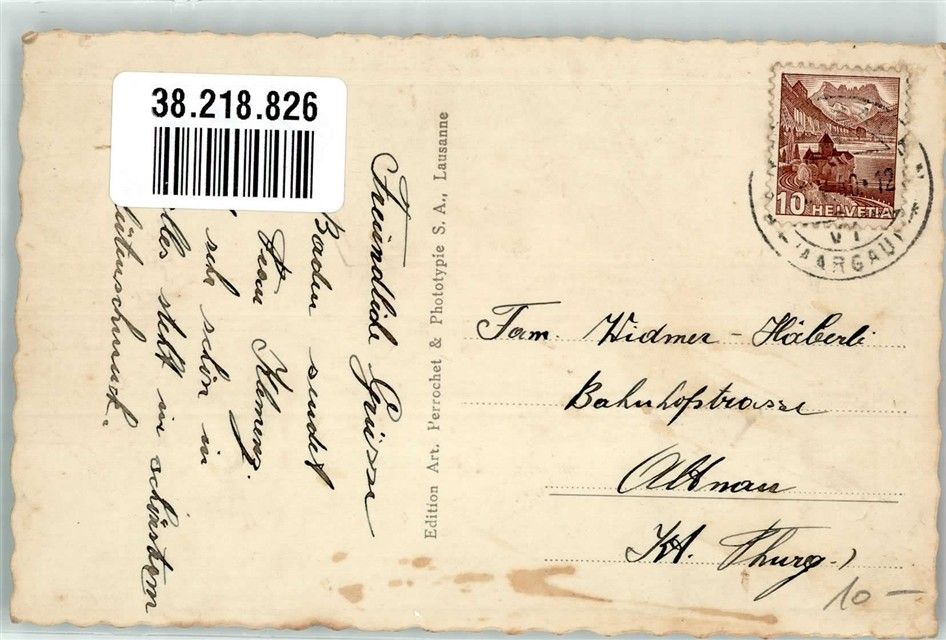 38.218.826
Freundliche Grüsse
Baden sendet
Frau Klemenz.
sehr schön in
alles steht in schönstem
Blütenschmuck.
Edition Art. Perrochet & Phototypie S. A., Lausanne
10 HELVETIA
12
VI
AARGAU
Fam. Widmer-Häberli
Bahnhofstrasse
Altnau
Kt. Thurg.
10-